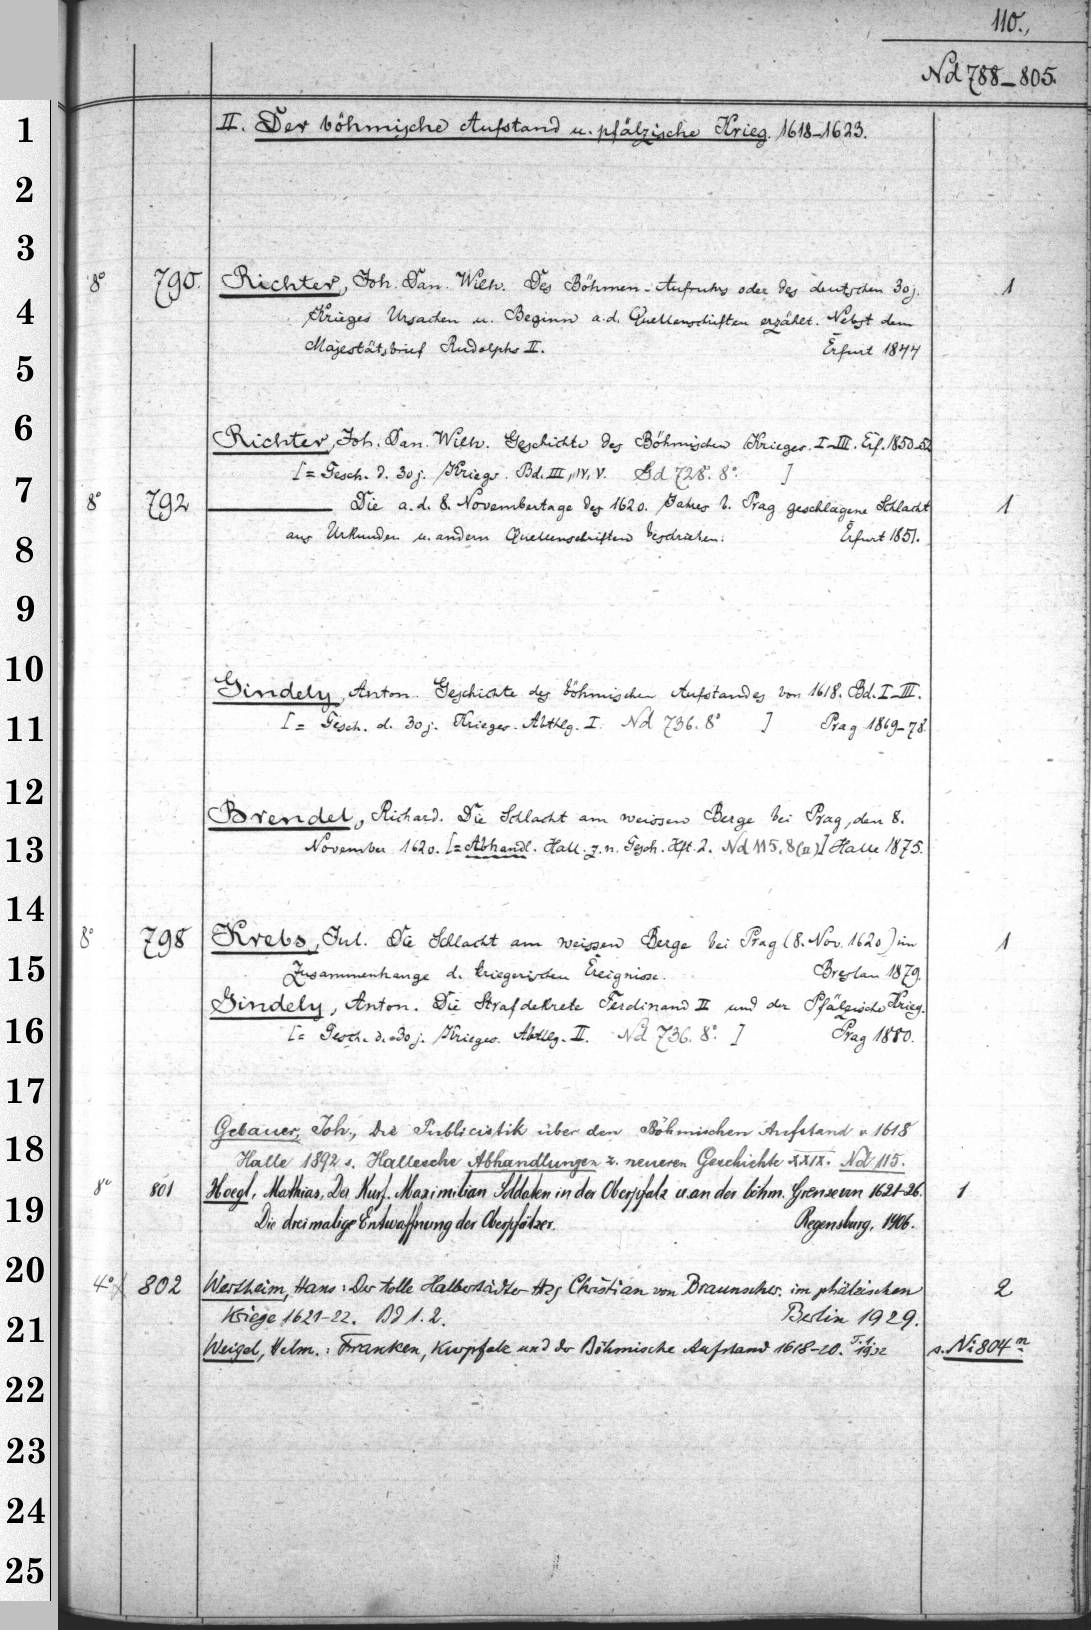 110.,
Nd 788–805.
II. Der böhmische Aufstand u. pfälzische Krieg. 1618–1623.
8° 790. Richter, Joh. Dan. Wilh. Des Böhmen-Aufruhrs oder des deutschen 30j. 1
Krieges Ursachen u. Beginn a.d. Quellenschriften erzählt. Nebst dem
Majestätsbrief Rudolphs II. Erfurt 1844
Richter, Joh. Dan. Wilh. Geschichte des Böhmischen Krieges. I–III. Erf. 1850–52
[= Gesch. d. 30j. Kriegs. Bd. III, IV, V. Gd 728. 8°. ]
8° 792 Die a.d. 8. Novembertage des 1620. Jahres b. Prag geschlagene Schlacht 1
aus Urkunden u. andern Quellenschriften beschrieben. Erfurt 1851.
Gindely, Anton. Geschichte des böhmischen Aufstandes von 1618. Bd. I–III.
[= Gesch. d. 30j. Krieges. Abthlg. I. Nd 736. 8° ] Prag 1869–78.
Brendel, Richard. Die Schlacht am weissen Berge bei Prag, den 8.
November 1620. [= Abhandl. Hall. z. n. Gesch. Hft. 2. Nd 115. 8(a)] Halle 1875.
8° 798 Krebs, Jul. Die Schlacht am weissen Berge bei Prag (8. Nov. 1620) im 1
Zusammenhange d. kriegerischen Ereignisse. Breslau 1879.
Gindely, Anton. Die Strafdekrete Ferdinand II und der Pfälzische Krieg.
[= Gesch. d. 30j. Krieges. Abthlg. II. Nd 736. 8°. ] Prag 1880.
Gebauer, Joh., Die Publicistik über den Böhmischen Aufstand v. 1618
Halle 1892 s. Hallesche Abhandlungen z. neueren Geschichte XXIX. Nd 115.
8° 801 Hoegl, Mathias, Des Kurf. Maximilian Soldaten in der Oberpfalz u. an der böhm. Grenze von 1621-26. 1
Die dreimalige Entwaffnung der Oberpfälzer. Regensburg, 1906.
4° 802 Wertheim, Hans: Der tolle Halberstädter Hzg Christian von Braunschw. im phälzischen 2
Kriege 1621-22. Bd 1.2. Berlin 1929.
Weigel, Helm.: Franken, Kurpfalz und der Böhmische Aufstand 1618-20. T. 1. 1932 s. Ni 804 m